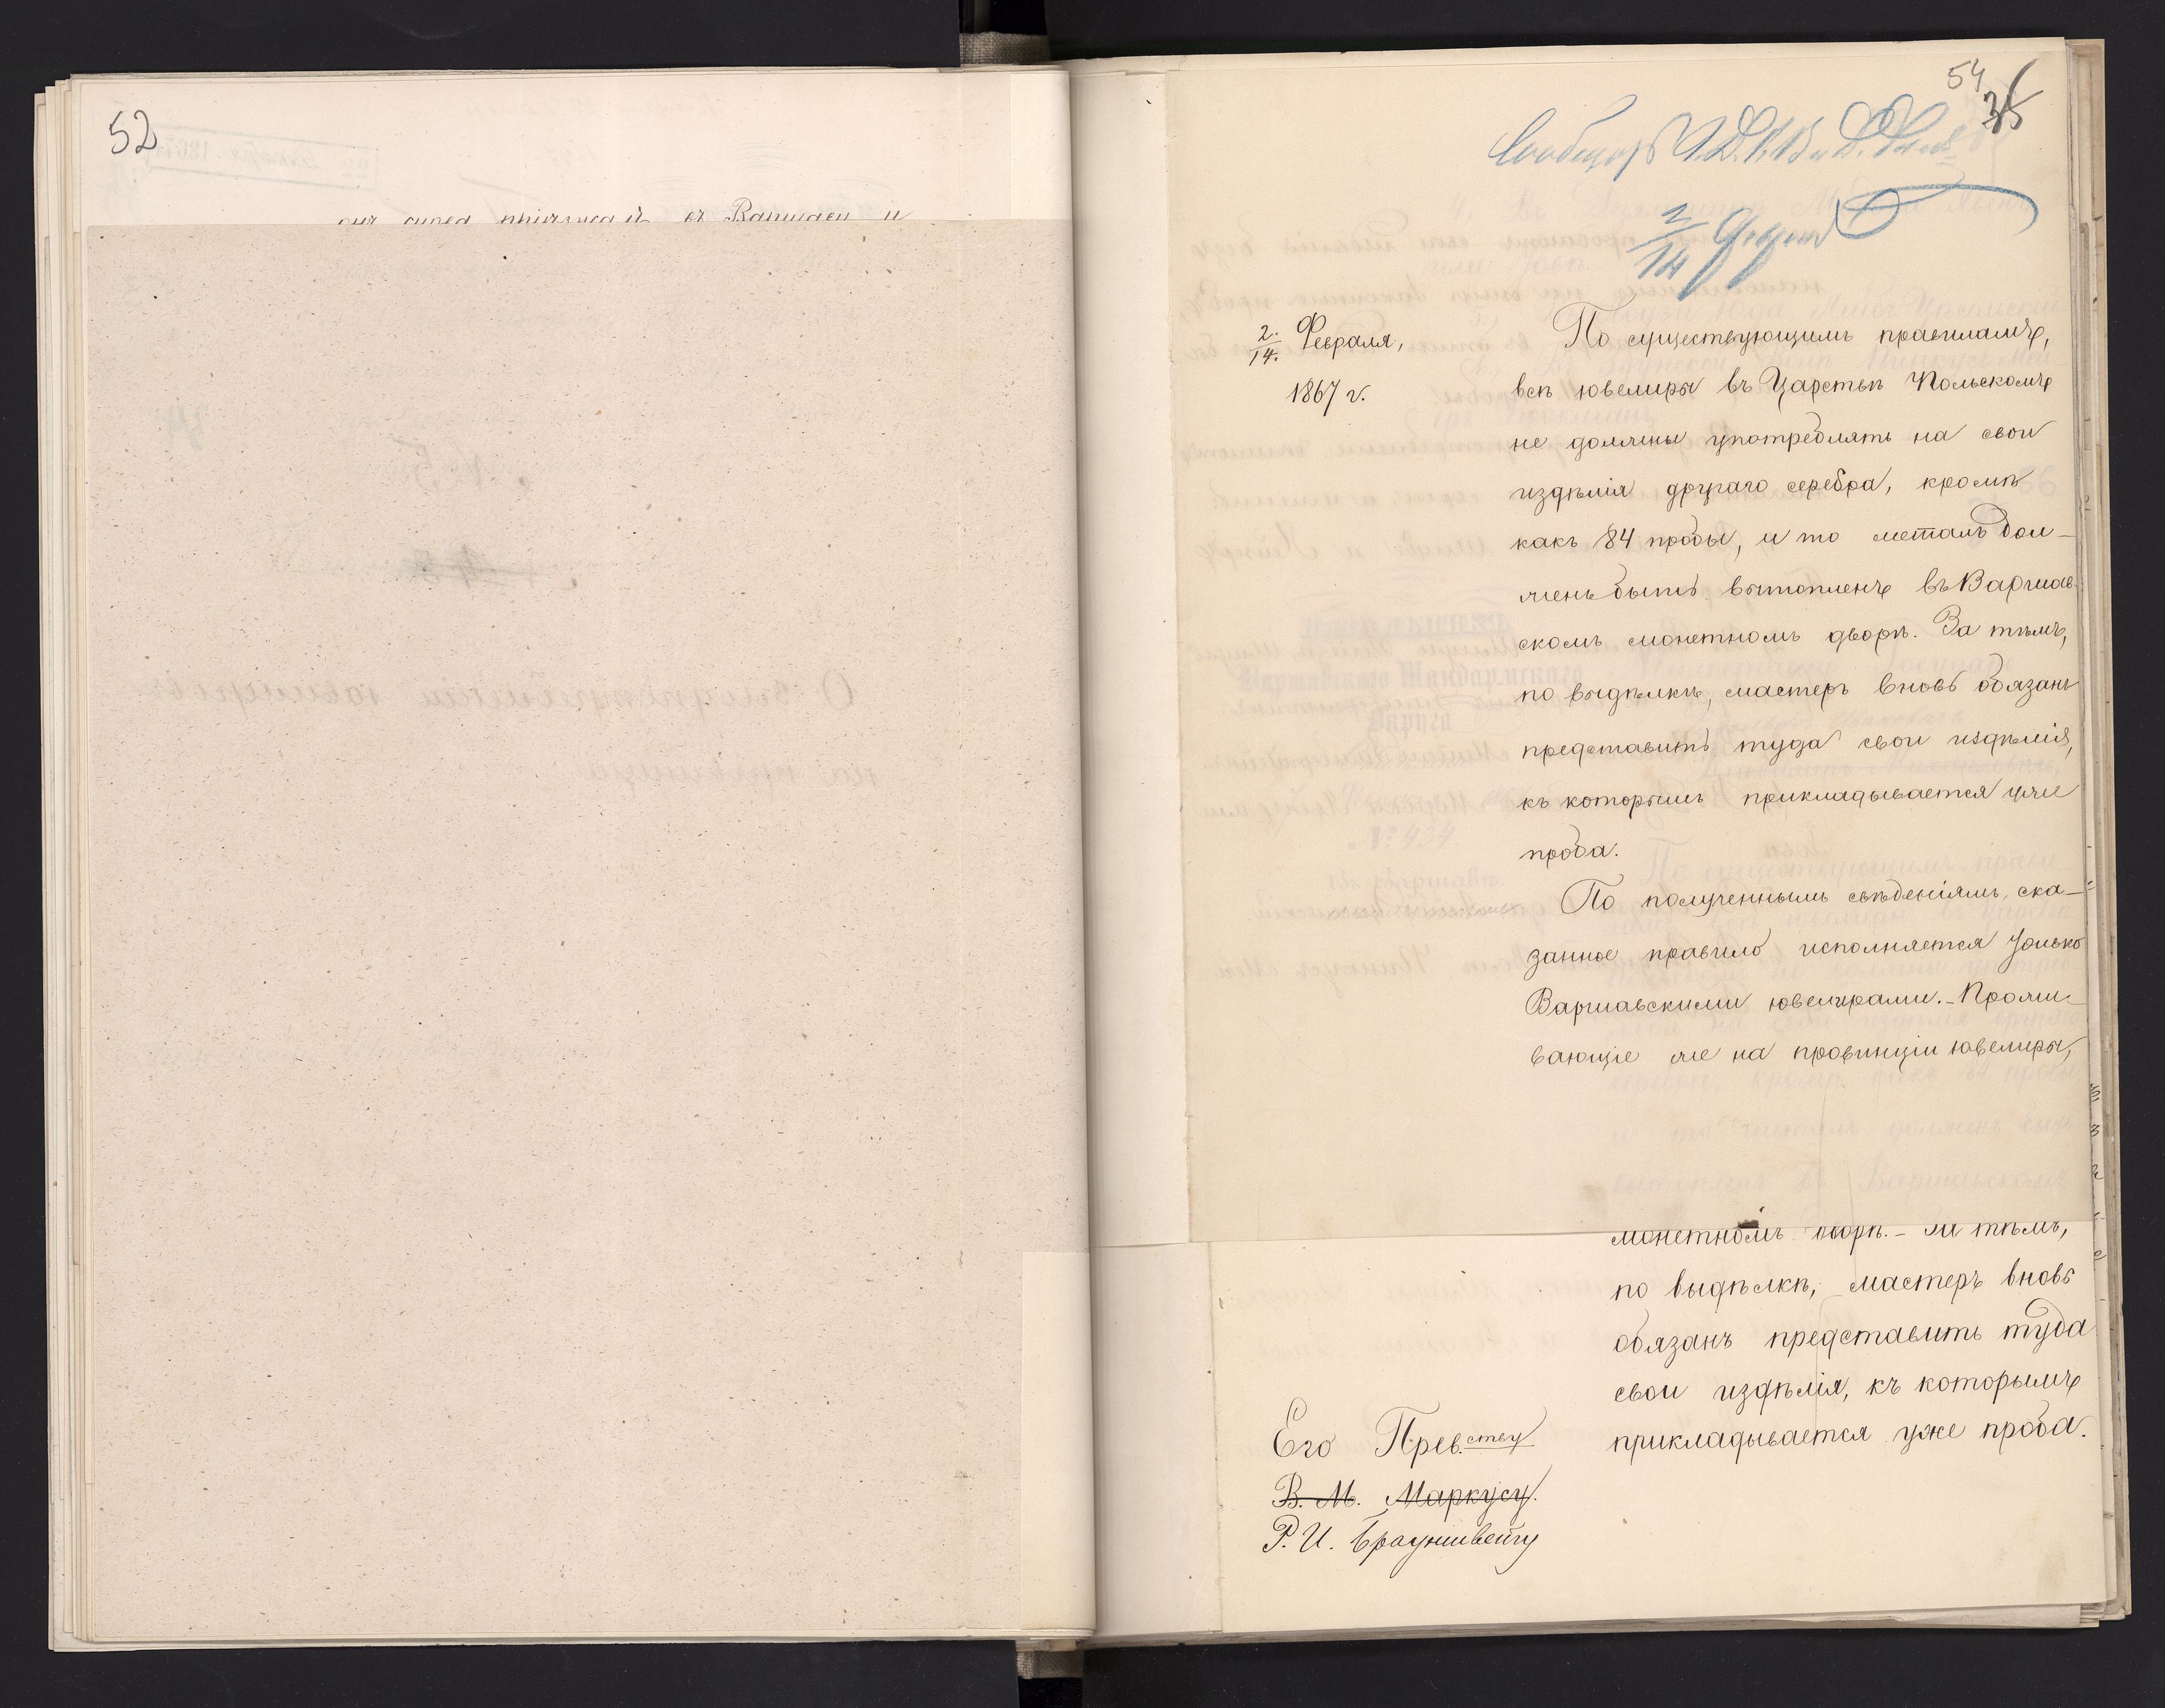 52
54
35
2/14 Февраля,
1867 г.
По существующимъ правиламъ,
всѣ ювелиры въ Царствѣ Польскомъ
не должны употреблять на свои
издѣлія другаго серебра, кромѣ
какъ 84 пробы, и то металъ дол-
женъ быть вытопленъ въ Варшав-
скомъ монетномъ дворѣ. За тѣмъ,
по выдѣлкѣ, мастеръ вновь обязанъ
представить туда свои издѣлія,
къ которымъ прикладывается уже
проба.
По полученнымъ свѣденіямъ, ска-
занное правило исполняется только
Варшавскими ювелирами. - Прожи-
вающіе же на провинціи ювелиры,
монетномъ дворѣ. - За тѣмъ,
по выдѣлкѣ, мастеръ вновь
обязанъ представить туда
свои издѣлія, къ которымъ
прикладывается уже проба.
Его Прев.ству
В. М. Маркусу.
Р. И. Брауншвейгу